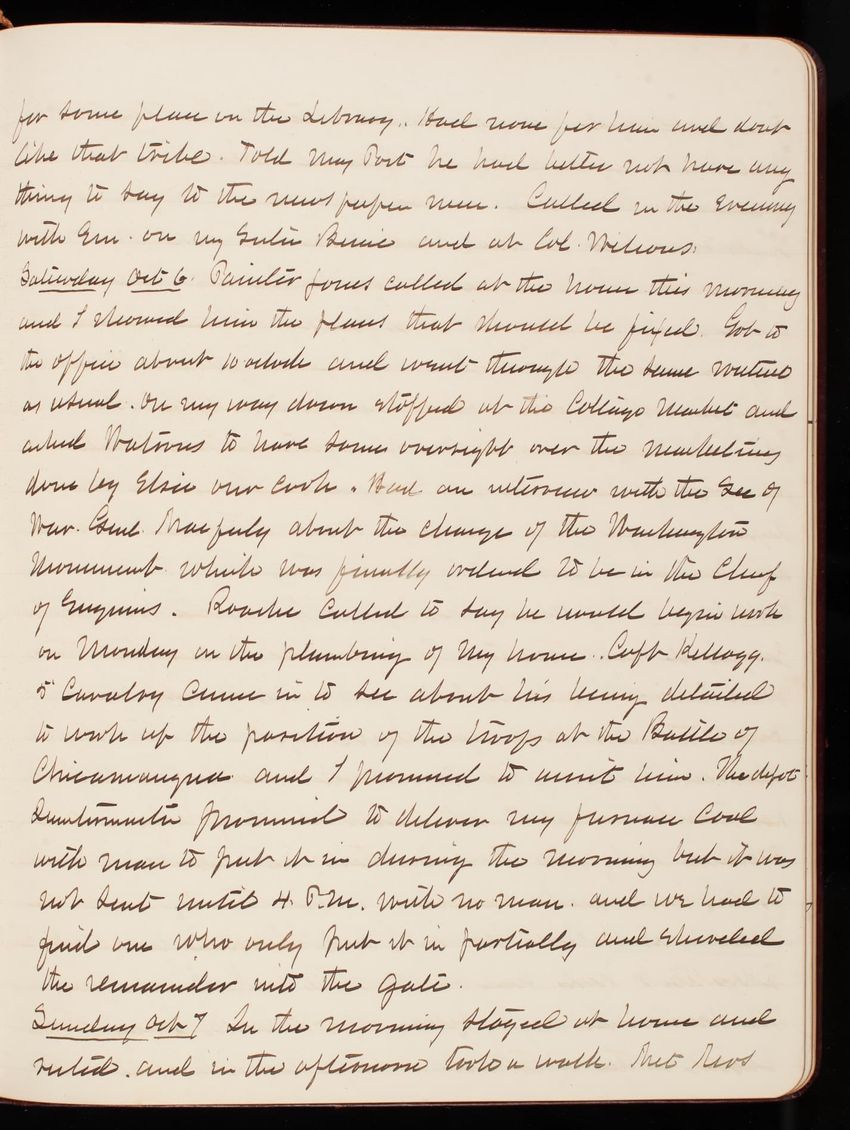 for some place in the Library. Had none for him and dont
like that tribe. Told May Post he had better not have any
thing to say to the newspaper men. Called in the Evening
with Em. on my and at Col. Wilsons.
Saturday Oct 6. Painter Jones called at the house this morning
and I showed him the places that should be fixed. Got to
the office about 10 oclock and went through the same routine
as usual. On my way down stopped at the College Market and
asked to have some oversight over the marketing
done by Elsie our Cook. Had an interview with the Sec of
War. Genl. Macfeely about the charge of the Washington
Monument which was finally ordered to be in the Chief
of Engineers. Roache called to say he would begin work
on Monday on the plumbing of my house. Capt Kellogg.
5 Cavalry came in to see about his being detailed
to work up the position of the troops at the Battle of
Chicamaugua and I promised to assist him. The depot
Quartermaster promised to deliver my furnace Coal
with man to put it in during the morning but it was
not sent until 4. P.M. with no man. and we had to
find one who only put it in partially and shoveled
the remainder into the gate.
Sunday Oct 7 In the morning stayed at home and
rested. and in the afternoon took a walk. Met Mrs